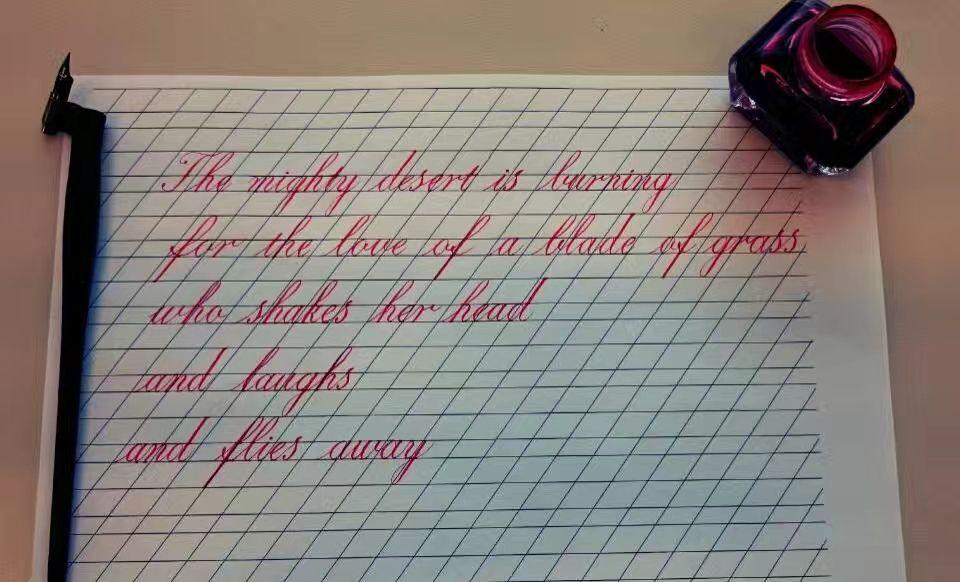 The mighty desert is burning
for the love of a blade of grass
who shakes her head
and laughs
and flies away